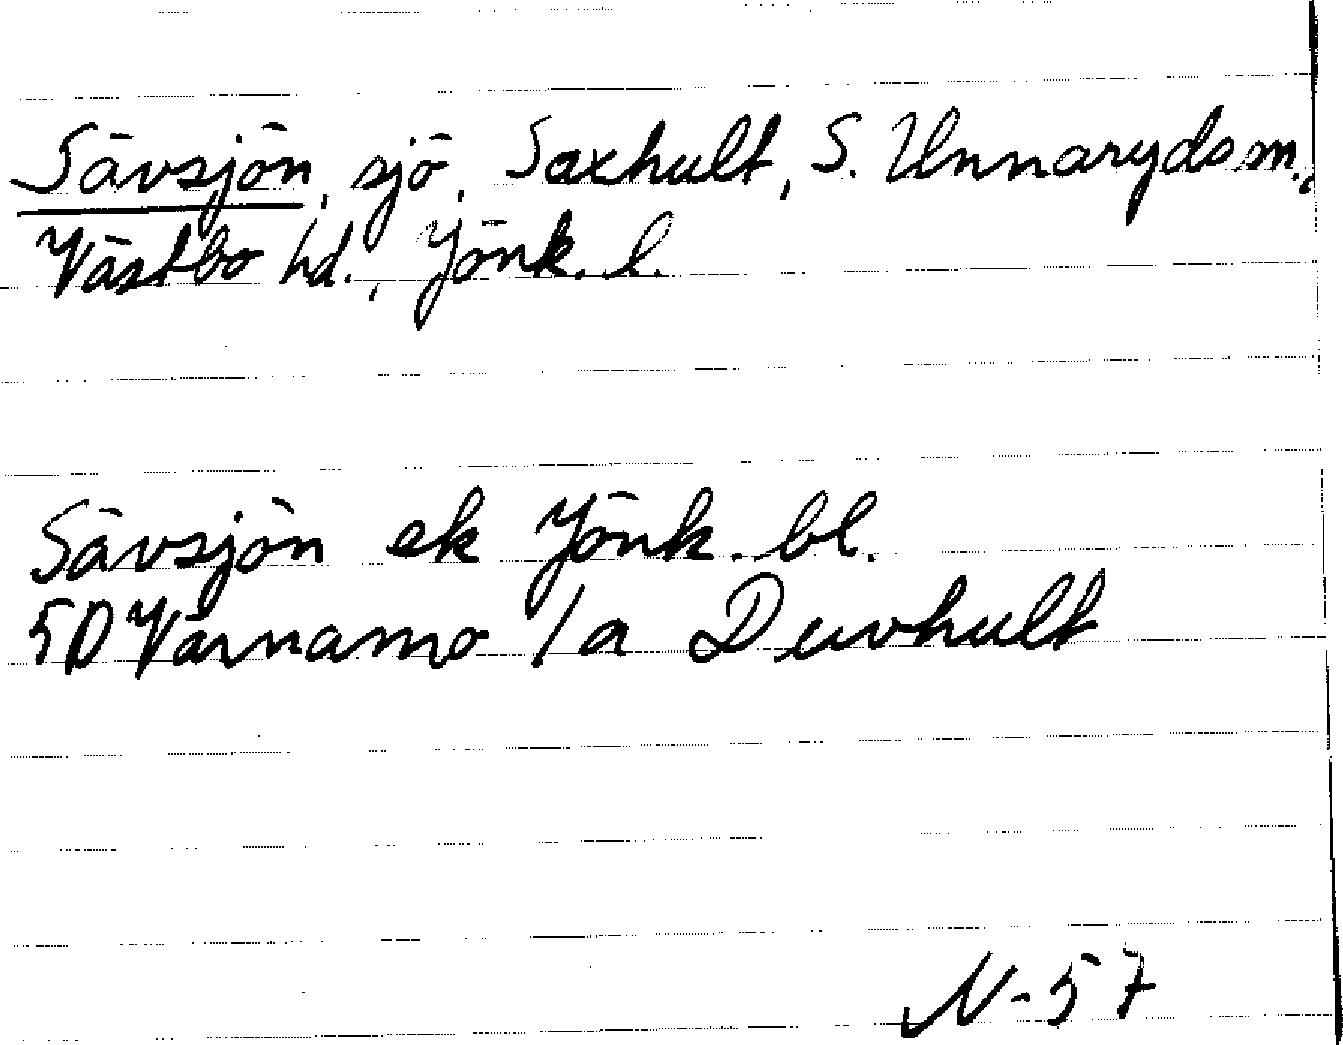 Sävsjön, sjö, Saxhult, S. Unnaryds sn.,
Västbo hd., Jönk. l.
Sävsjön ek Jönk. bl.
5D Värnamo 1a Duvhult
N-57